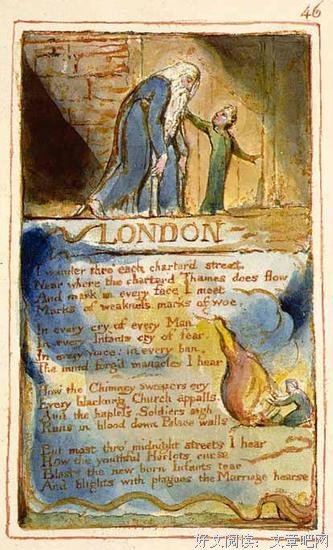 46
LONDON
I wander thro each charter'd street,
Near where the charter'd Thames does flow
And mark in every face I meet
Marks of weakness, marks of woe.
In every cry of every Man,
In every Infants cry of fear,
In every voice: in every ban,
The mind-forg'd manacles I hear
How the Chimney-sweepers cry
Every blackning Church appalls,
And the hapless Soldiers sigh
Runs in blood down Palace walls
But most thro' midnight streets I hear
How the youthful Harlots curse
Blasts the new born Infants tear
And blights with plagues the Marriage hearse
好文阅读：文章吧网